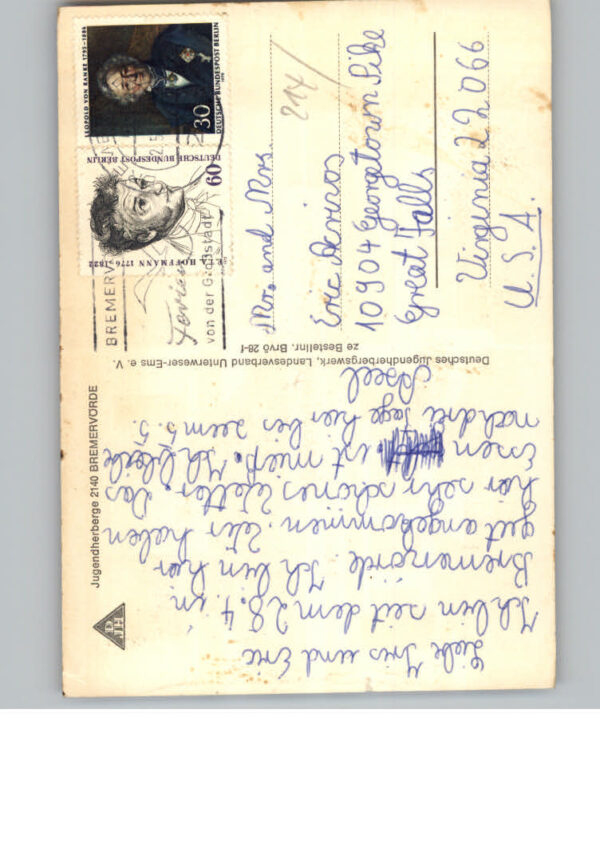 DJH
Jugendherberge 2140 BREMERVÖRDE
Liebe Iris und Eric
Ich bin seit dem 28.4. in
Bremervörde. Ich bin hier
gut angekommen. Wir haben
hier sehr schönes Wetter. Das
Essen ist mies. Ich bleibe
noch drei Tage hier bis zum 5.5.
Axel
Deutsches Jugendherbergswerk, Landesverband Unterweser-Ems e. V.
ze Bestellnr. Brvö 28-f
LEOPOLD VON RANKE 1795-1886
DEUTSCHE BUNDESPOST BERLIN
30
DEUTSCHE BUNDESPOST BERLIN
60
E.T.A. HOFFMANN 1776-1822
BREMERV
Ferien
von der Großstadt
214/
Mr. and Mrs.
Eric
10904 Georgetown Pike
Great Falls
Virginia 22066
U.S.A.